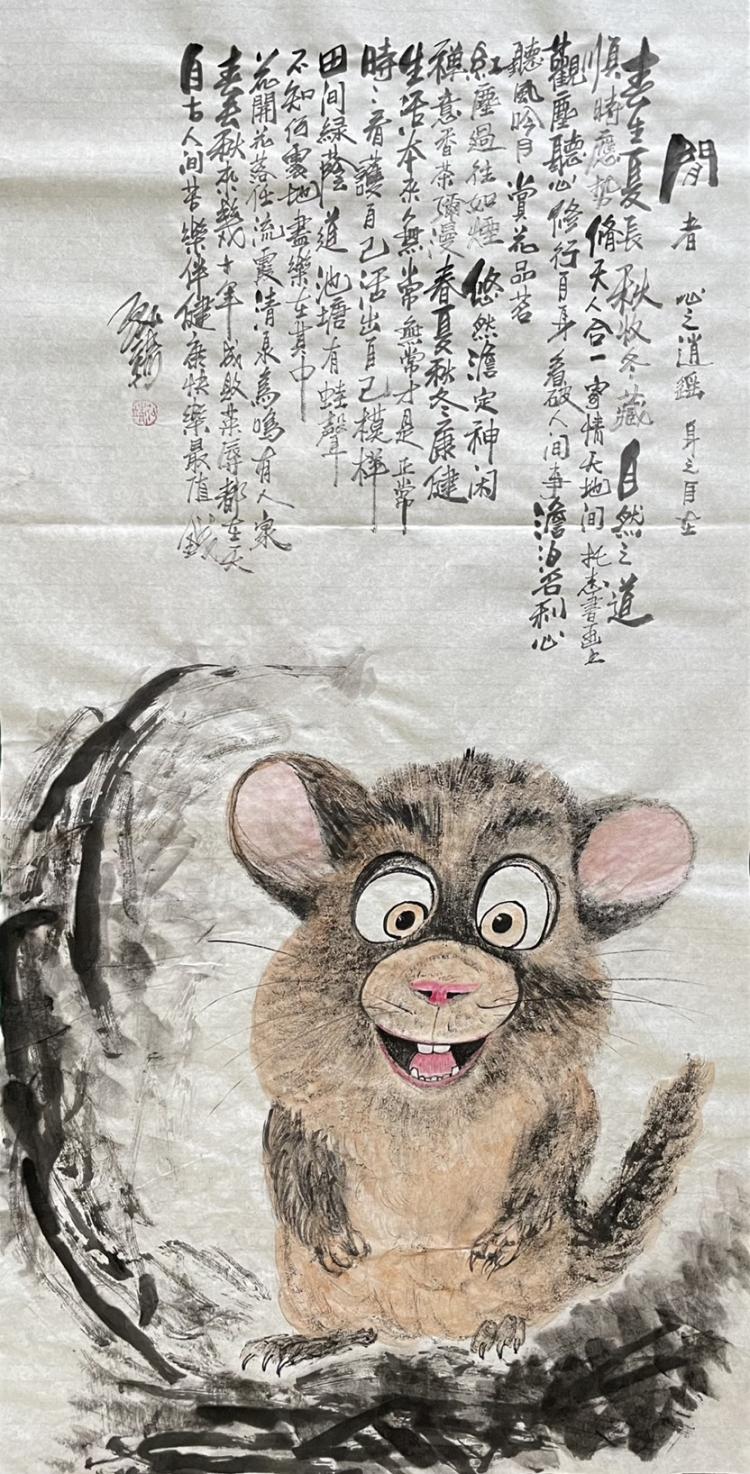 閒者 心之逍遥 身之自在
春生夏長 秋收冬藏 自然之道
順時應勢 脩天人合一 寄情天地間 托志書画上
觀塵聽心 修行自身 看破人間事 澹泊名利心
聽風吟月 賞花品茗
紅塵過往如煙 悠然澹定神闲
禅意香茶彌漫 春夏秋冬康健
生活本來無常 無常才是正常
時時看護自己 活出自己模樣
田间緑蔭道 池塘有蛙聲
不知何處地 盡樂在其中
花開花落任流霞 清泉鳥鳴有人家
春去秋來幾十年 成敗荣辱都在天
自古人间苦樂伴 健康快樂最值錢